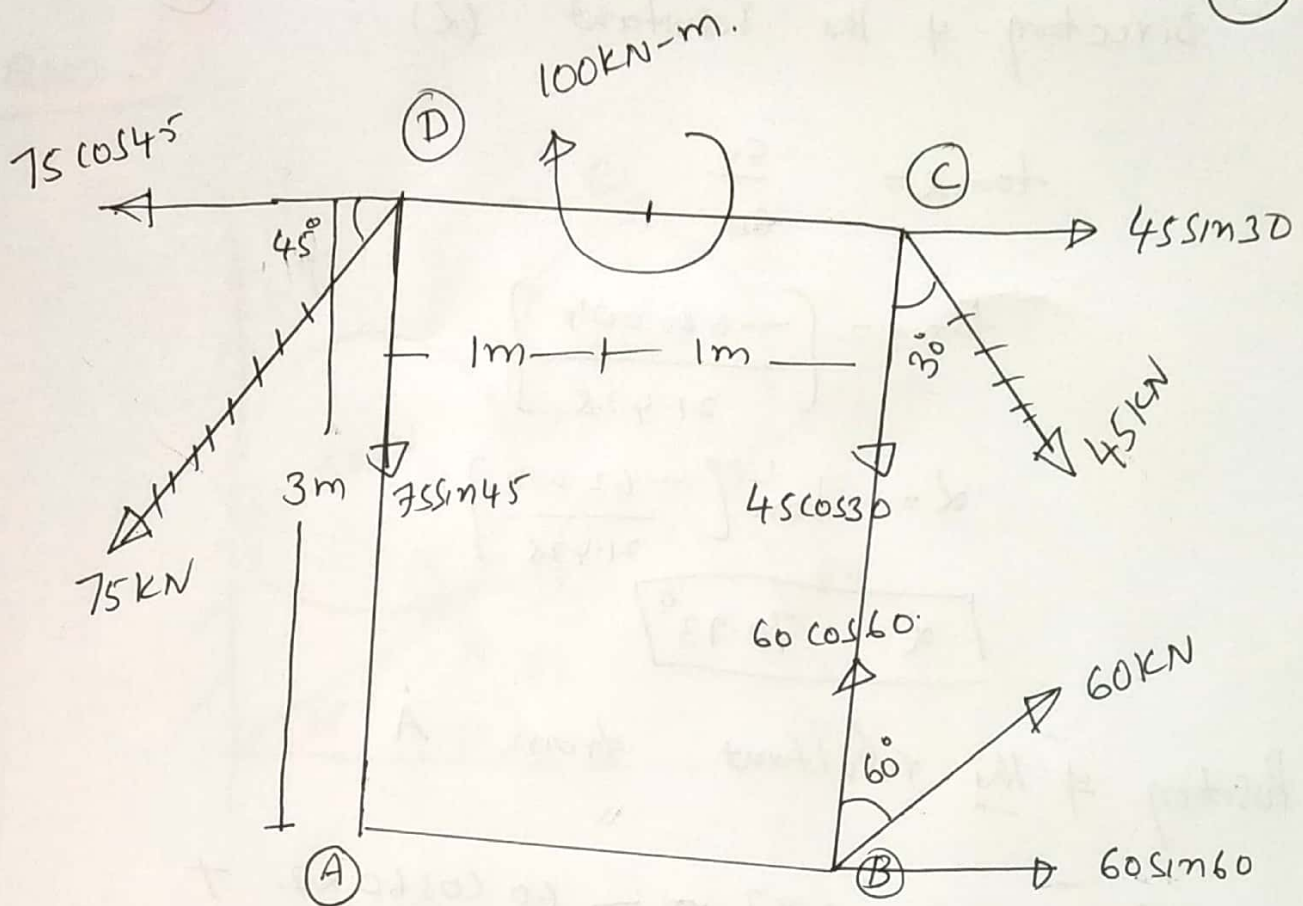 100KN-m.
75 cos45
D
C
45°
45sin30
1m
1m
30°
45KN
3m
75sin45
45cos30
75KN
60 cos60.
60KN
60°
A
B
60sin60